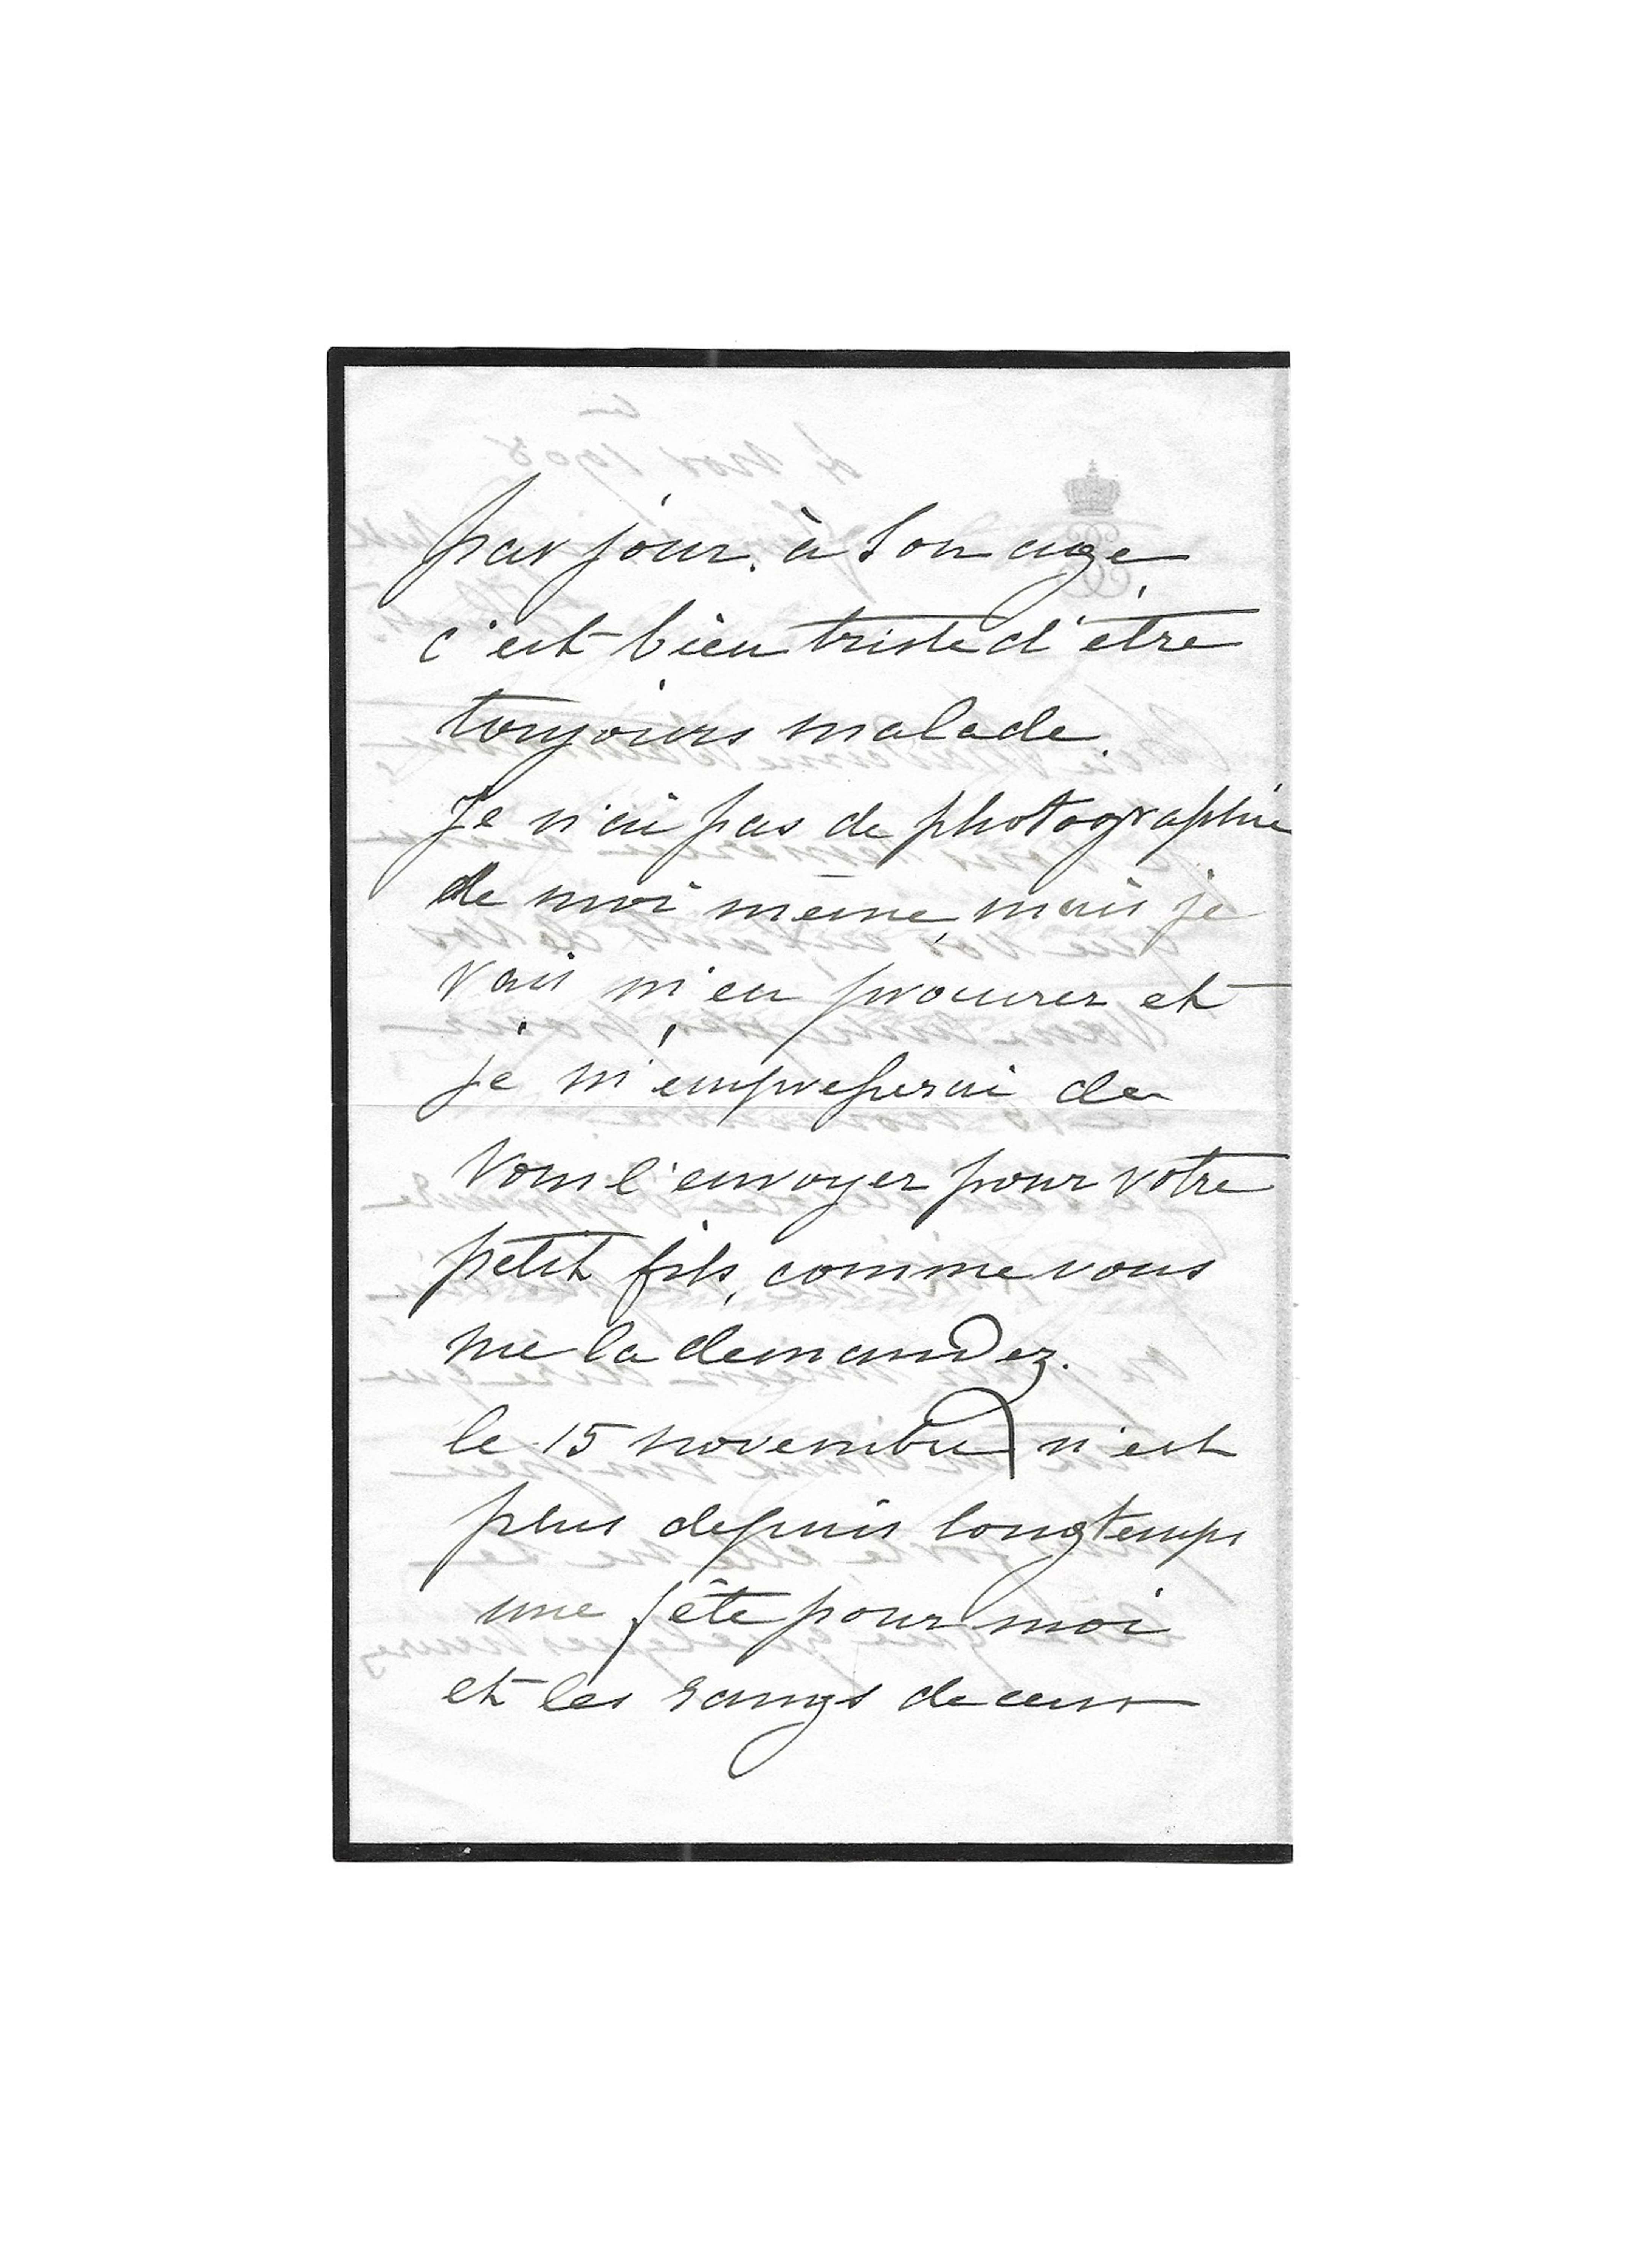 par jour. à son age
c'est bien triste d'être
toujours malade.
Je n'ai pas de photographie
de moi même, mais je
vais m'en procurer et
je m'empresserai de
vous l'envoyer pour votre
petit fils, comme vous
me la demandez.
le 15 novembre n'est
plus depuis longtemps
une fête pour moi
et les rangs de ceux